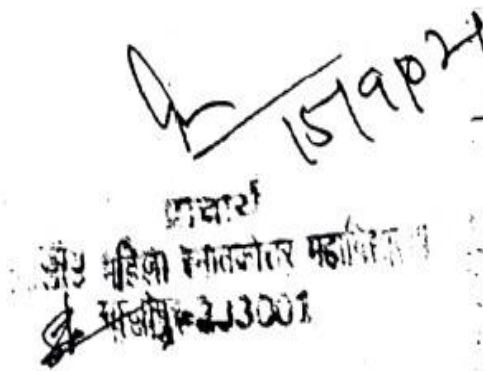 15/9/2021
प्राचार्य
महिला स्नातकोत्तर महाविद्यालय
गाजीपुर-233001